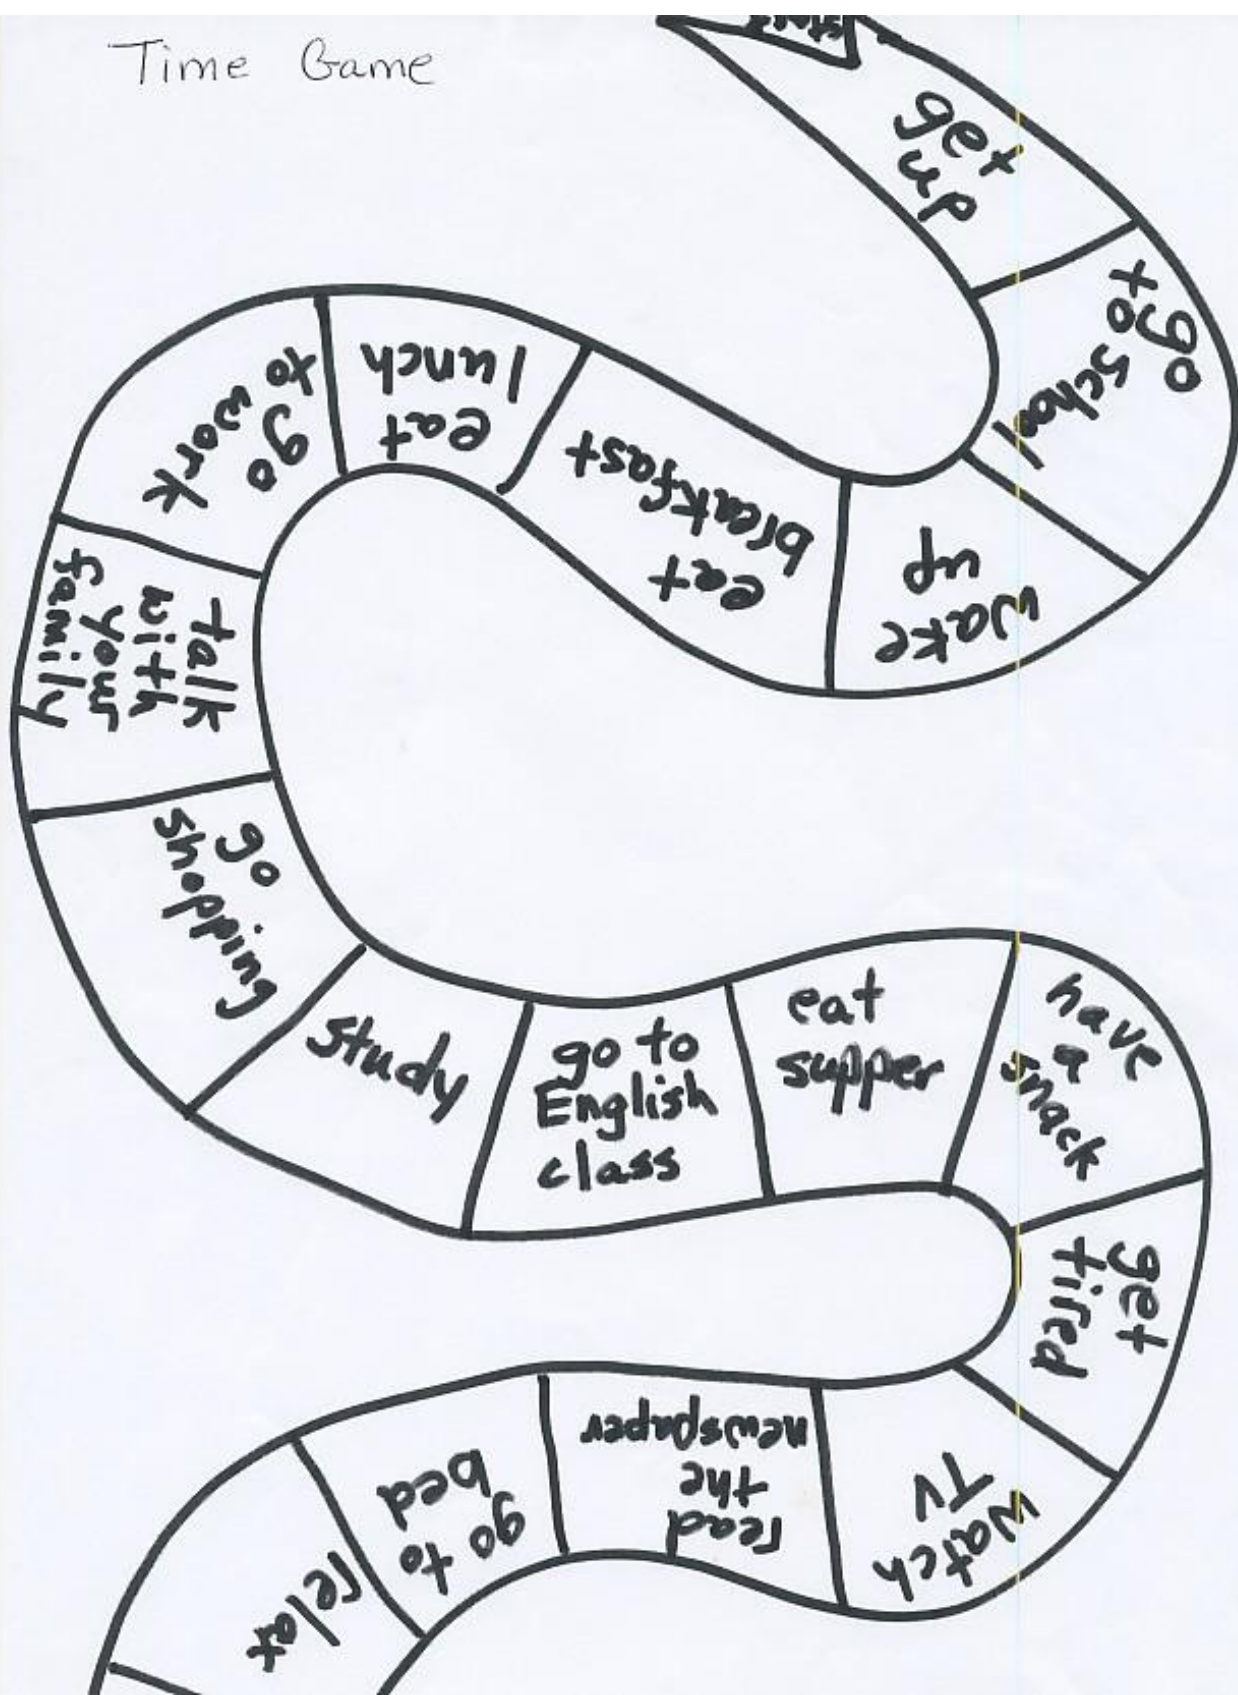 Time Game
start
get
up
go
to school
wake
up
eat
breakfast
eat
lunch
go
to work
talk
with
your
family
go
shopping
study
go to
English
class
eat
supper
have
a
snack
get
tired
watch
TV
read
the
newspaper
go to
bed
relax